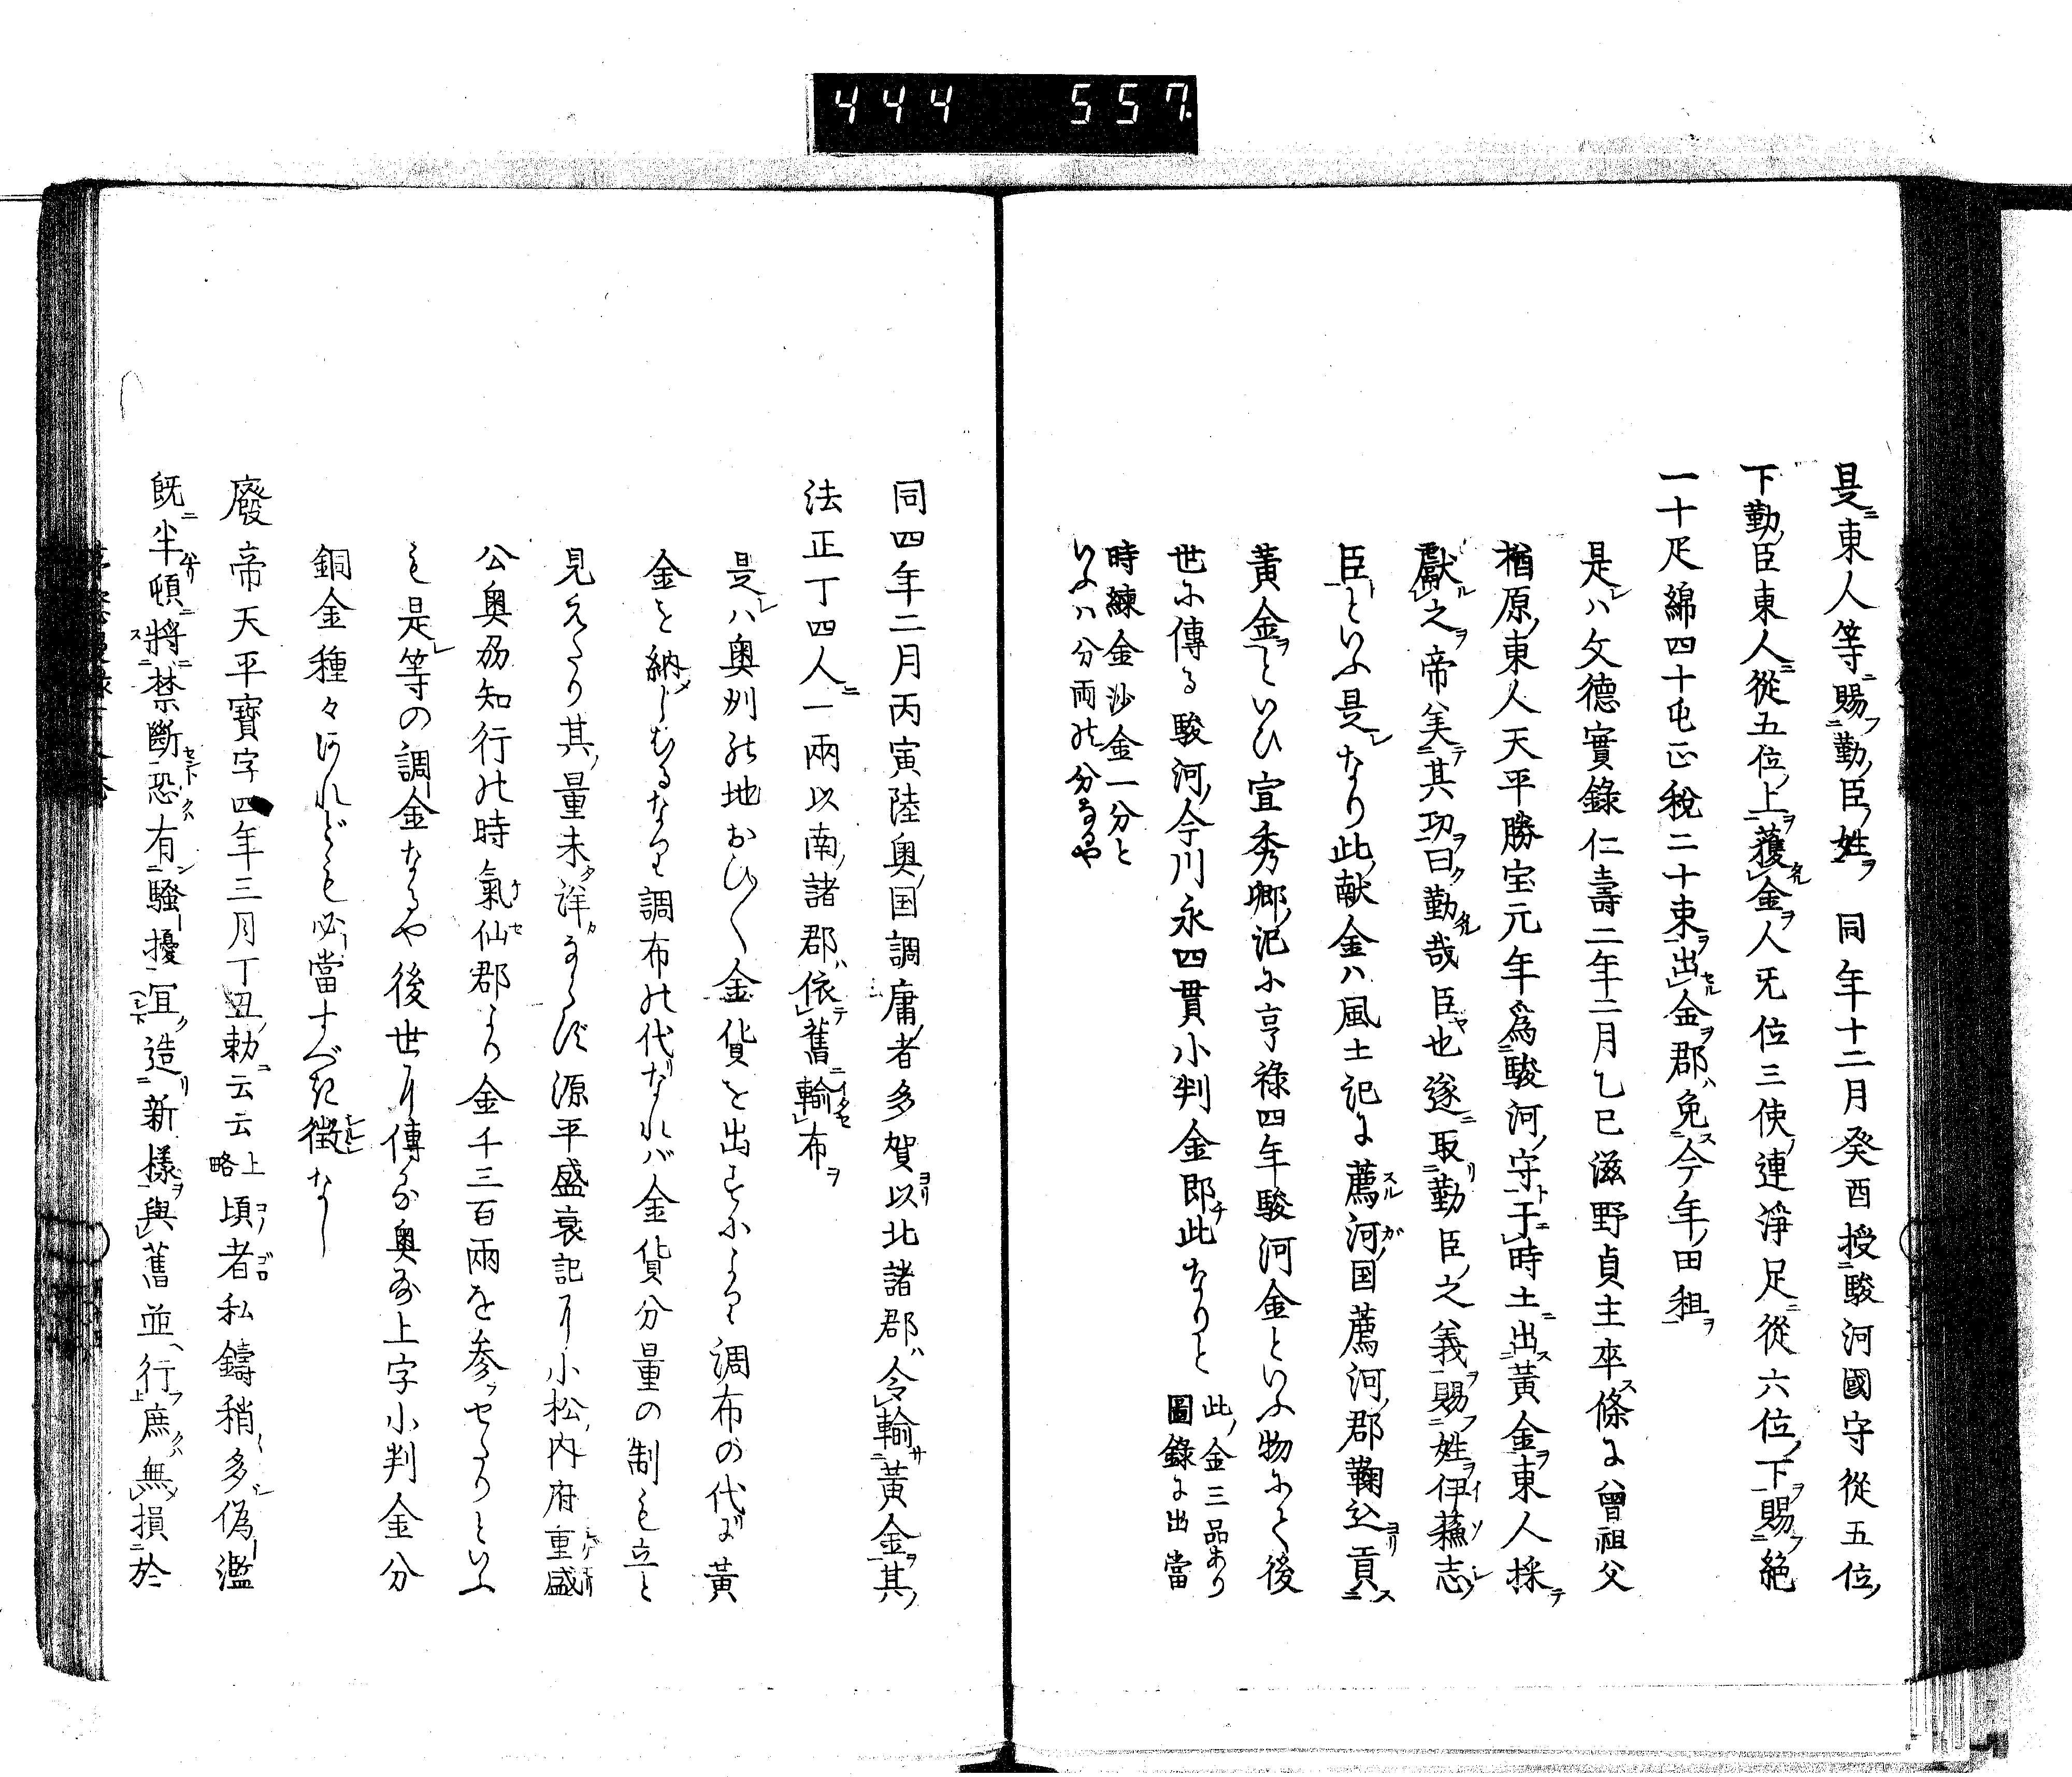 444 557.
是東人等賜勤臣姓 同年十二月癸酉授駿河國守從五位
下勤臣東人從五位上獲金人旡位三使連淨足從六位下賜絁
一十疋綿四十屯正稅二十束出金郡免今年田租
是ハ文德實錄仁壽二年二月乙巳滋野貞主卒條に曾祖父
楢原東人天平勝宝元年為駿河守于時土出黃金東人採
獻之帝美其功曰勤哉臣也遂取勤臣之義賜姓伊蘓志
臣といふ是なり此献金ハ風土記に薦河国薦河郡鞠込貢
黃金といひ宣秀卿記に亨祿四年駿河金といふ物にて後
世に傳る駿河今川永四貫小判金即此なりと 此金三品あり
圖錄に出當
時練金沙金一分と
いふハ分兩の分なるや
同四年二月丙寅陸奧国調庸者多賀以北諸郡令輸黃金其
法正丁四人一兩以南諸郡依舊輸布
是ハ奧州の地おひ〱金貨を出すによりて調布の代に黃
金を納しむるなりて調布の代なれバ金貨分量の制も立と
見えたり其量未詳ならず源平盛衰記に小松内府重盛
公奧州知行の時氣仙郡より金千三百兩を參セたりといふ
も是等の調金なるや後世に傳る奧州上字小判金分
銅金種々あれども必當すべき徵なし
廢帝天平寶字四年三月丁丑勅云云上略頃者私鑄稍多偽濫
既半頓將禁斷恐有騷擾宜造新樣與舊並行庶無損於